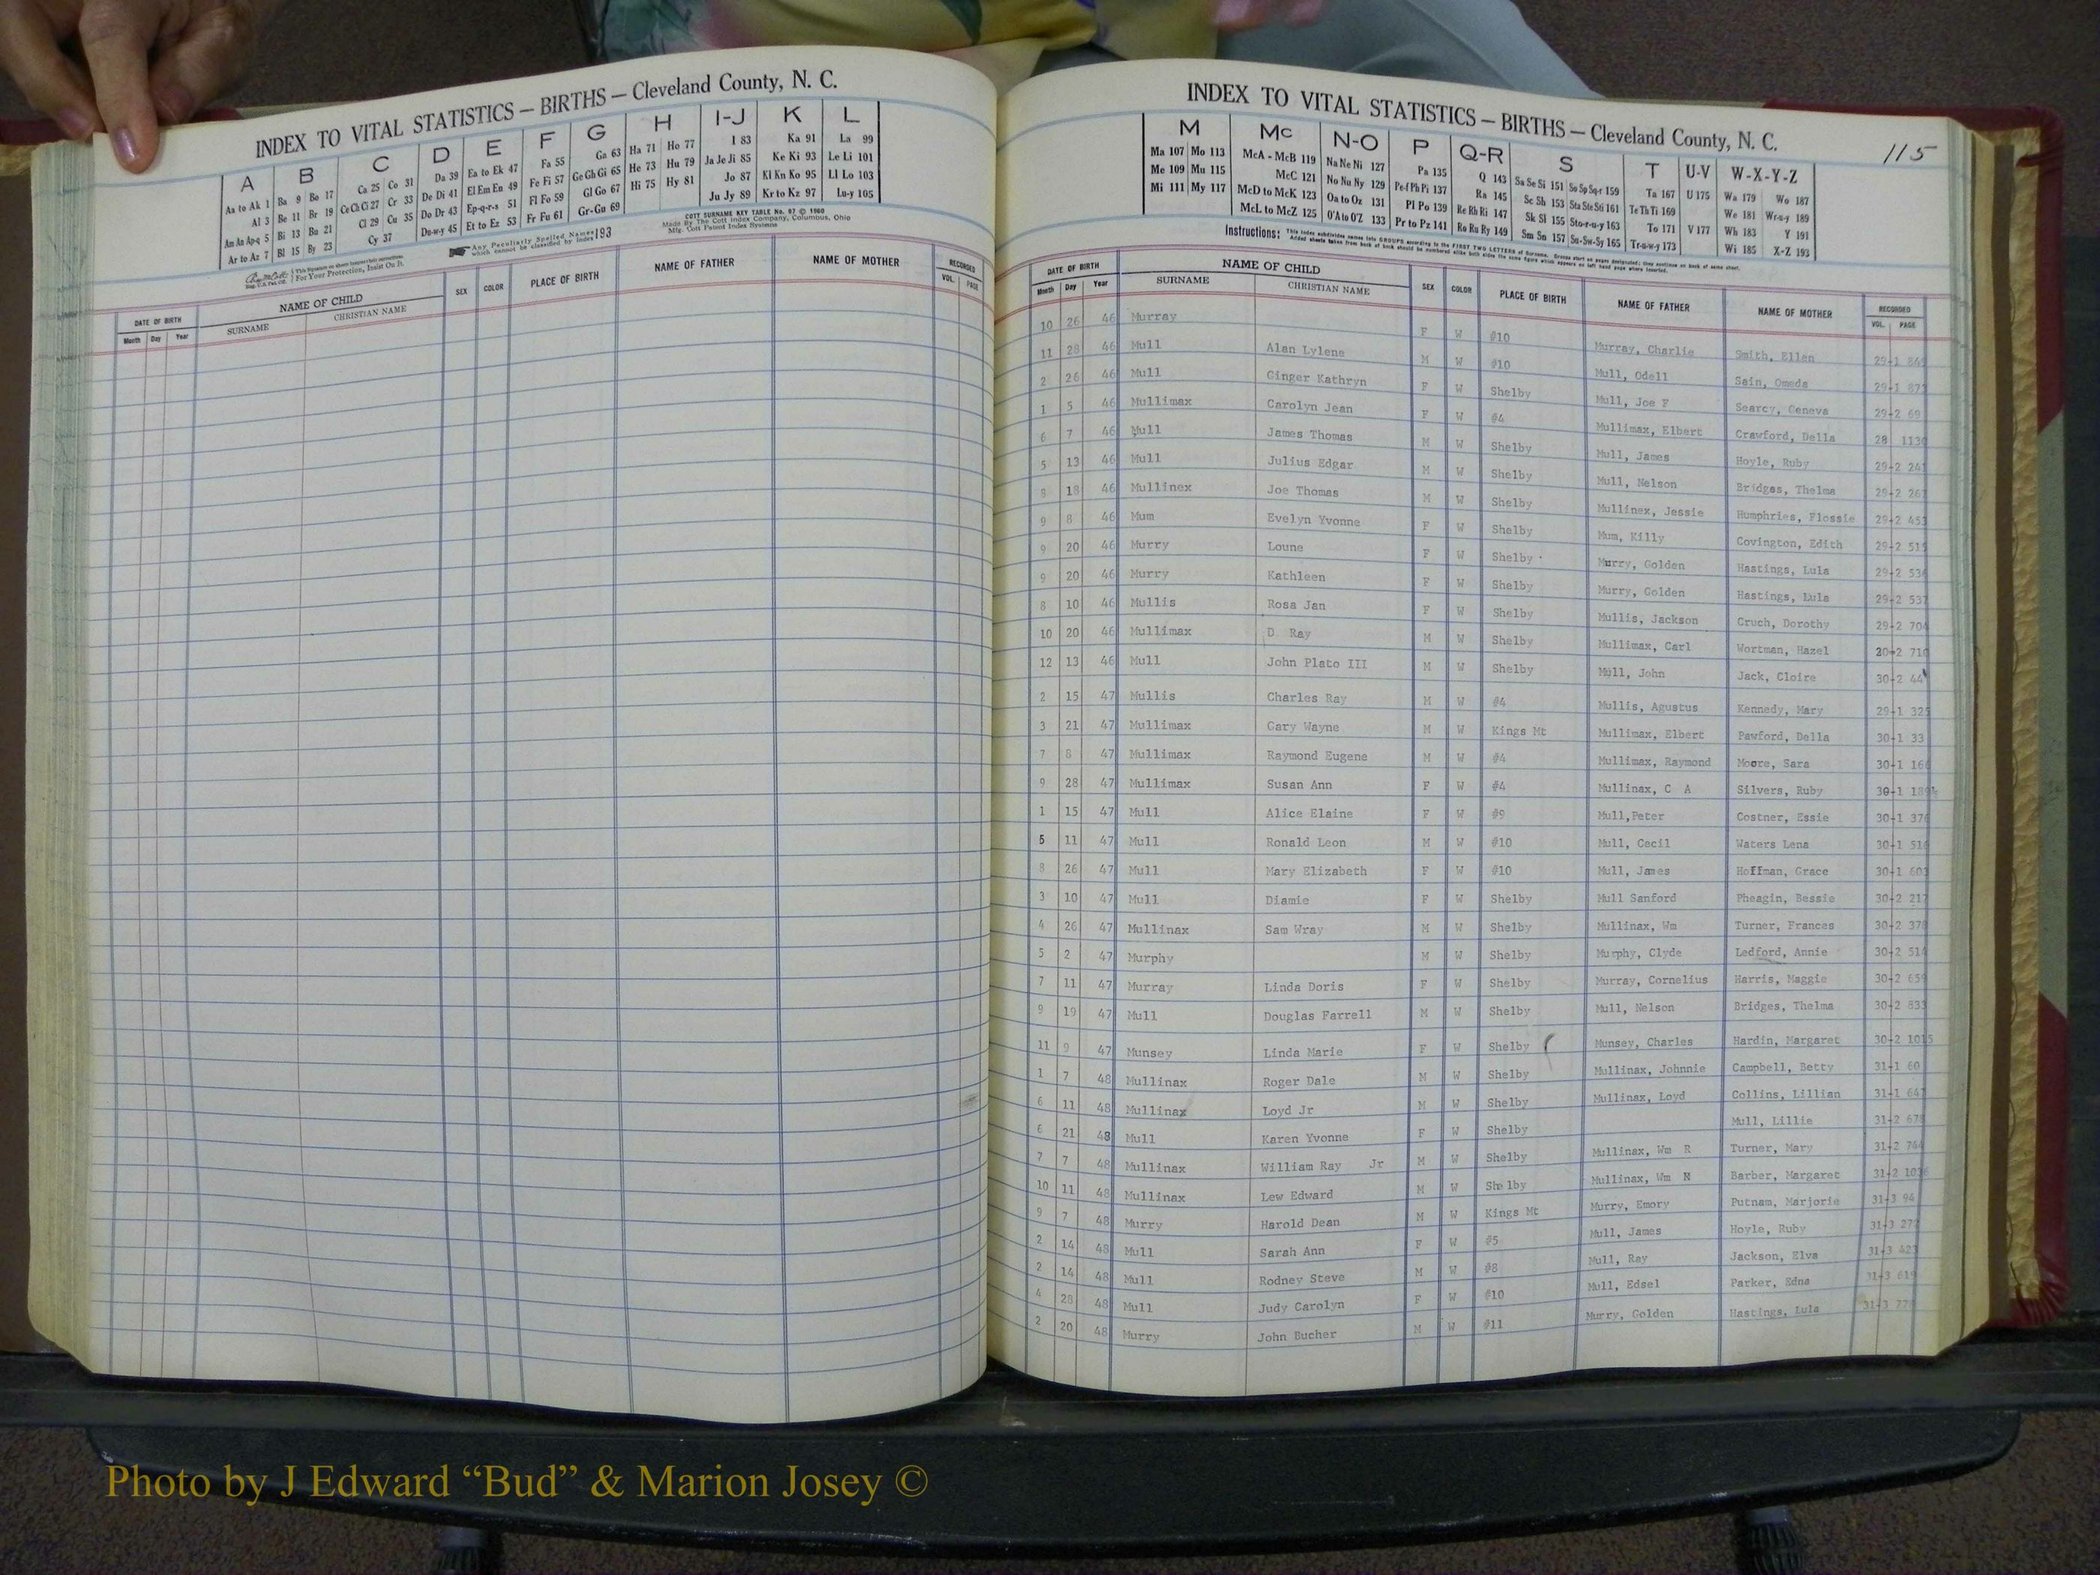 INDEX TO VITAL STATISTICS – BIRTHS – Cleveland County, N. C.
A B C D E F G H I-J K L
Aa to Ak 1 Ba 9 Bo 17 Ca 25 Co 31 Da 39 Ea to Ek 47 Fa 55 Ga 63 Ha 71 Ho 77 I 83 Ka 91 La 99
Al 3 Be 11 Br 19 Ce Ch Ci 27 Cr 33 De Di 41 El Em En 49 Fe Fi 57 Ge Gh Gi 65 He 73 Hu 79 Ja Je Ji 85 Ke Ki 93 Le Li 101
Am An Ap-q 5 Bi 13 Bu 21 Cl 29 Cu 35 Do Dr 43 Ep-q-r-s 51 Fl Fo 59 Gl Go 67 Hi 75 Hy 81 Jo 87 Kl Kn Ko 95 Ll Lo 103
Ar to Az 7 Bl 15 By 23 Cy 37 Du-w-y 45 Et to Ez 53 Fr Fu 61 Gr-Gu 69 Ju Jy 89 Kr to Kz 97 Lu-y 105
COTT SURNAME KEY TABLE No. 97 © 1960
Made By The Cott Index Company, Columbus, Ohio
Mfg. Cott Patent Index Systems
Any Peculiarly Spelled Names which cannot be classified by Index 193
For Your Protection, Insist On It.
DATE OF BIRTH NAME OF CHILD SEX COLOR PLACE OF BIRTH NAME OF FATHER NAME OF MOTHER RECORDED
Month Day Year SURNAME CHRISTIAN NAME VOL. PAGE
INDEX TO VITAL STATISTICS – BIRTHS – Cleveland County, N. C.
115
M Mc N-O P Q-R S T U-V W-X-Y-Z
Ma 107 Mo 113 McA - McB 119 Na Ne Ni 127 Pa 135 Q 143 Sa Se Si 151 So Sp Sq-r 159 Ta 167 U 175 Wa 179 Wo 187
Me 109 Mu 115 McC 121 No Nu Ny 129 Pe-f Ph Pi 137 Ra 145 Sc Sh 153 Sta Ste Sti 161 Te Th Ti 169 We 181 Wr-u-y 189
Mi 111 My 117 McD to McK 123 Oa to Oz 131 Pl Po 139 Re Rh Ri 147 Sk Sl 155 Sto-r-u-y 163 To 171 V 177 Wh 183 Y 191
McL to McZ 125 O'A to O'Z 133 Pr to Pz 141 Ro Ru Ry 149 Sm Sn 157 Su-Sw-Sy 165 Tr-u-w-y 173 Wi 185 X-Z 193
Instructions: This index subdivides names into GROUPS according to the FIRST TWO LETTERS of Surname.
DATE OF BIRTH NAME OF CHILD SEX COLOR PLACE OF BIRTH NAME OF FATHER NAME OF MOTHER RECORDED
Month Day Year SURNAME CHRISTIAN NAME VOL. PAGE
10 26 46 Murray F W #10 Murray, Charlie Smith, Ellen 29-1
11 28 46 Mull Alan Lylene M W #10 Mull, Odell Sain, Omeda 29-1
2 26 46 Mull Ginger Kathryn F W Shelby Mull, Joe F Searcy, Geneva 29-2 69
1 5 46 Mullimax Carolyn Jean F W #4 Mullimax, Elbert Crawford, Della 28 1130
6 7 46 Mull James Thomas M W Shelby Mull, James Hoyle, Ruby 29-2 241
5 13 46 Mull Julius Edgar M W Shelby Mull, Nelson Bridges, Thelma 29-2 267
8 18 46 Mullinex Joe Thomas M W Shelby Mullinex, Jessie Humphries, Flossie 29-2 453
9 8 46 Mum Evelyn Yvonne F W Shelby Mum, Killy Covington, Edith 29-2 515
9 20 46 Murry Loune F W Shelby Murry, Golden Hastings, Lula 29-2 536
9 20 46 Murry Kathleen F W Shelby Murry, Golden Hastings, Lula 29-2 537
8 10 46 Mullis Rosa Jan F W Shelby Mullis, Jackson Cruch, Dorothy 29-2 704
10 20 46 Mullimax D Ray M W Shelby Mullimax, Carl Wortman, Hazel 20-2 710
12 13 46 Mull John Plato III M W Shelby Mull, John Jack, Cloire 30-2 44
2 15 47 Mullis Charles Ray M W #4 Mullis, Agustus Kennedy, Mary 29-1 325
3 21 47 Mullimax Gary Wayne M W Kings Mt Mullimax, Elbert Pawford, Della 30-1 33
7 8 47 Mullimax Raymond Eugene M W #4 Mullimax, Raymond Moore, Sara 30-1 166
9 28 47 Mullimax Susan Ann F W #4 Mullinax, C A Silvers, Ruby 30-1
1 15 47 Mull Alice Elaine F W #9 Mull,Peter Costner, Essie 30-1 376
5 11 47 Mull Ronald Leon M W #10 Mull, Cecil Waters Lena 30-1
8 26 47 Mull Mary Elizabeth F W #10 Mull, James Hoffman, Grace 30-1 603
3 10 47 Mull Diamie F W Shelby Mull Sanford Pheagin, Bessie 30-2 217
4 26 47 Mullinax Sam Wray M W Shelby Mullinax, Wm Turner, Frances 30-2 378
5 2 47 Murphy M W Shelby Murphy, Clyde Ledford, Annie 30-2 514
7 11 47 Murray Linda Doris F W Shelby Murray, Cornelius Harris, Maggie 30-2 659
9 19 47 Mull Douglas Farrell M W Shelby Mull, Nelson Bridges, Thelma 30-2 833
11 9 47 Munsey Linda Marie F W Shelby Munsey, Charles Hardin, Margaret 30-2 1015
1 7 48 Mullinax Roger Dale M W Shelby Mullinax, Johnnie Campbell, Betty 31-1 60
6 11 48 Mullinax Loyd Jr M W Shelby Mullinax, Loyd Collins, Lillian 31-1 647
6 21 48 Mull Karen Yvonne F W Shelby Mull, Lillie 31-2 678
7 7 48 Mullinax William Ray Jr M W Shelby Mullinax, Wm R Turner, Mary 31-2 744
10 11 48 Mullinax Lew Edward M W Shelby Mullinax, Wm N Barber, Margaret 31-2 1036
9 7 48 Murry Harold Dean M W Kings Mt Murry, Emory Putnam, Marjorie 31-3 94
2 14 48 Mull Sarah Ann F W #5 Mull, James Hoyle, Ruby 31-3 277
2 14 48 Mull Rodney Steve M W #8 Mull, Ray Jackson, Elva 31-3 423
4 28 48 Mull Judy Carolyn F W #10 Mull, Edsel Parker, Edna 31-3 619
2 20 48 Murry John Bucher M W #11 Murry, Golden Hastings, Lula 31-3
Photo by J Edward “Bud” & Marion Josey ©